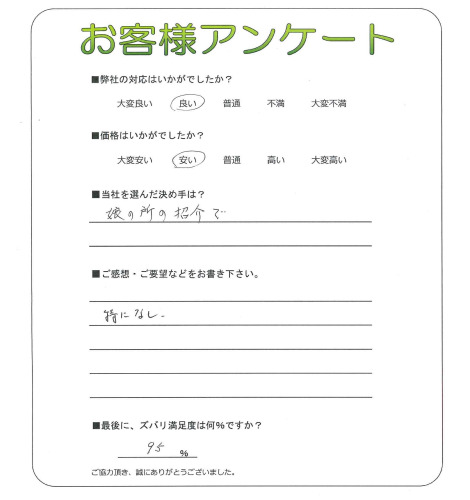 お客様アンケート
■弊社の対応はいかがでしたか?
大変良い 良い 普通 不満 大変不満
■価格はいかがでしたか?
大変安い 安い 普通 高い 大変高い
■当社を選んだ決め手は?
娘の所の紹介で
■ご感想・ご要望などをお書き下さい。
特になし.
■最後に、ズバリ満足度は何%ですか?
95 %
ご協力頂き、誠にありがとうございました。